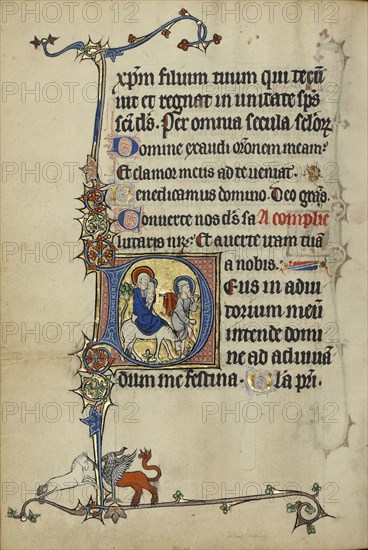 xp̄m filium tuum qui tecū
uiuit et regnat in unitate sp̄s
sc̄i d̄s. Per omnia secula sc̄lor̄
Domine exaudi or̄onem meam:
Et clamor meus ad te ueniat.
Benedicamus domino. Deo gr̄as.
Conuerte nos d̄s sa A complie
lutaris nr̄: Et auerte iram tuā
a nobis.
Deus in adiu
torium meū
intende domi
ne ad adiuuā
dum me festina. Gl̄a pr̄i.
PHOTO12